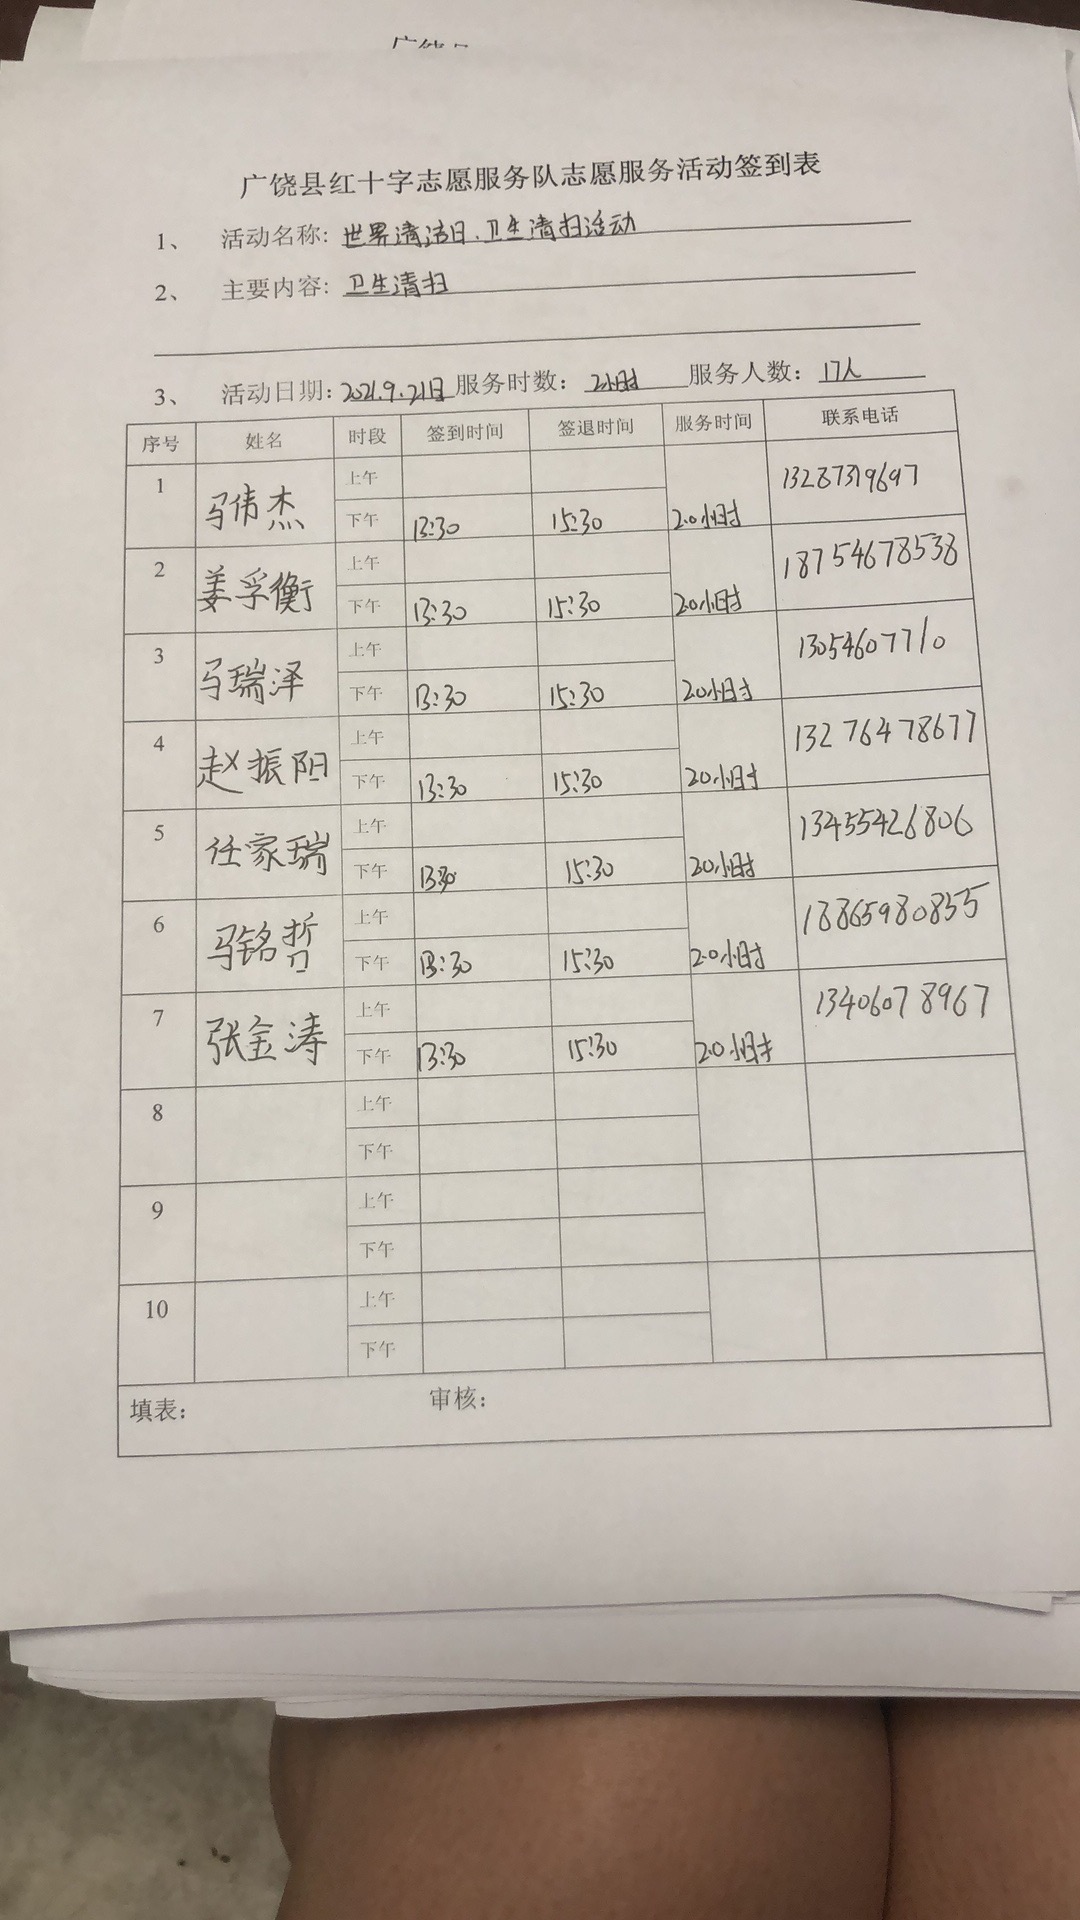 广饶县红十字志愿服务队志愿服务活动签到表
1、 活动名称: 世界清洁日.卫生清扫活动
2、 主要内容: 卫生清扫
3、 活动日期: 2021.9.21日 服务时数: 2小时 服务人数: 17人
序号 姓名 时段 签到时间 签退时间 服务时间 联系电话
1 马伟杰 上午 13287319697
下午 13:30 15:30 2.0小时
2 姜孚衡 上午 18754678538
下午 13:30 15:30 2.0小时
3 马瑞泽 上午 13054607710
下午 13:30 15:30 2.0小时
4 赵振阳 上午 13276478677
下午 13:30 15:30 2.0小时
5 任家瑞 上午 13455426806
下午 13:30 15:30 2.0小时
6 马铭哲 上午 18865980855
下午 13:30 15:30 2.0小时
7 张金涛 上午 13406078967
下午 13:30 15:30 2.0小时
8 上午
下午
9 上午
下午
10 上午
下午
填表: 审核: